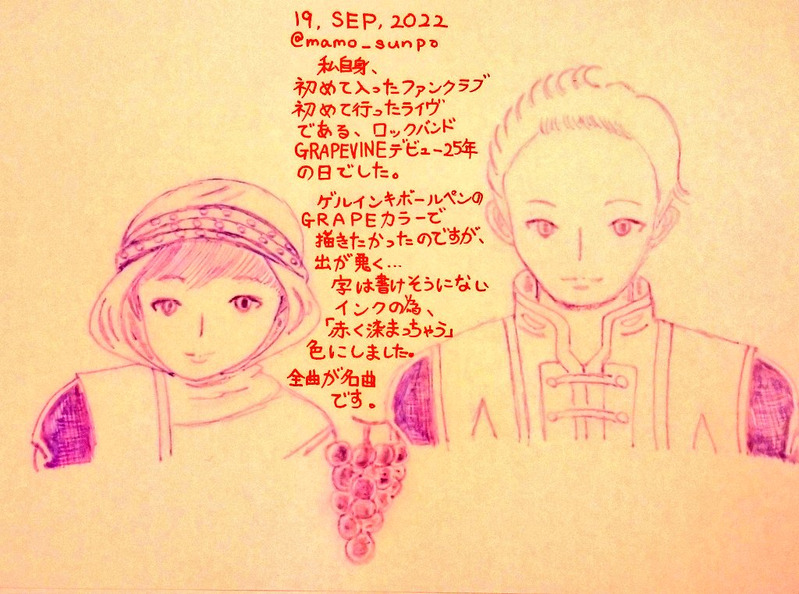 19, SEP, 2022
@mamo_sunpo
私自身、
初めて入ったファンクラブ
初めて行ったライヴ
である、ロックバンド
GRAPEVINEデビュー25年
の日でした。
ゲルインキボールペンの
GRAPEカラーで
描きたかったのですが、
出が悪く…
字は書けそうにない
インクの為、
「赤く染まっちゃう」
色にしました。
全曲が名曲
です。